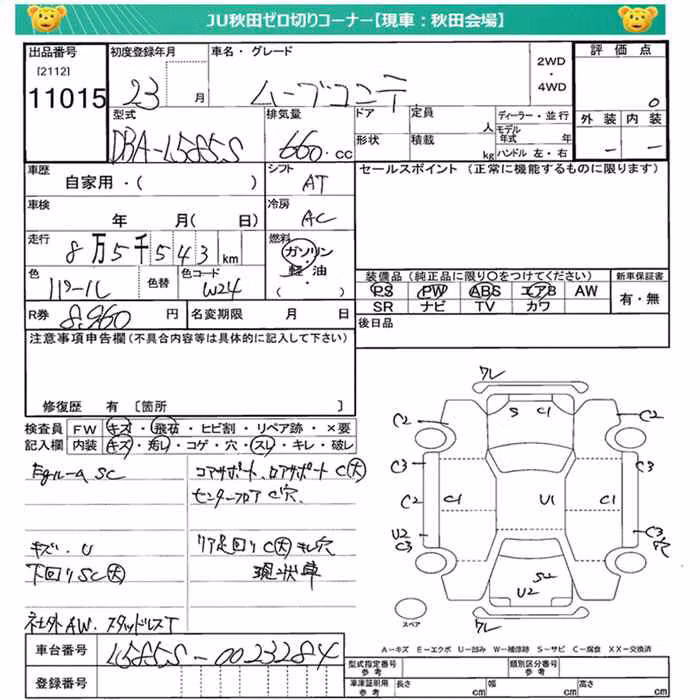 JU秋田ゼロ切りコーナー【現車：秋田会場】
出品番号 初度登録年月 車名・グレード 2WD・4WD 評価点
[2112]
11015 23 月 ムーブコンテ 0
型式 排気量 ドア 定員 人 ディーラー・並行 外装 内装
DBA-L585S 660.cc 形状 積載 kg モデル年式 年 ハンドル 左・右 － －
車歴 シフト セールスポイント (正常に機能するものに限ります)
自家用・( ) AT
車検 冷房
年 月( 日) AC
走行 燃料
8万5千543km ガソリン・軽油 ( )
色 色替 色コード 装備品 (純正品に限り○をつけてください) 新車保証書
パール W24 PS PW ABS エアB AW 有・無
SR ナビ TV カワ
R券 8,960 円 名変期限 月 日 後日品
注意事項申告欄 (不具合内容等は具体的に記入して下さい)
修復歴 有 [箇所 ]
検査員 FW キズ・飛石・ヒビ割・リペア跡・×要
記入欄 内装 キズ・汚レ・コゲ・穴・スレ・キレ・破レ
SC コアサポート、ロアサポート C(大)
センターフロア C穴、
キズ・U リア足回りC(大)キレ穴
下回りSC(大) 現状車
社外AW、スタッドレスT
ワレ
S C1
C2 C2
C3 C3
C2 C1 U1 C1
U2 C3
C3 穴
S2
U2
ワレ
スペア
A－キズ E－エクボ U－凹み W－補修跡 S－サビ C－腐食 XX－交換済
車台番号 L585S-0023284
登録番号
型式指定番号 参考 類別区分番号 参考
車庫証明用 参考 長さ cm 幅 cm 高さ cm